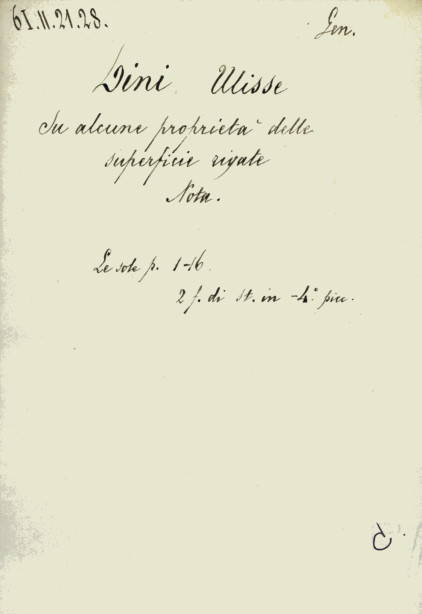 61.11.21.28.
Gen.
Dini Ulisse
Su alcune proprietà delle
superficie rigate
Nota.
Le sole p. 1-16.
2 f. di st. in -4.° picc.